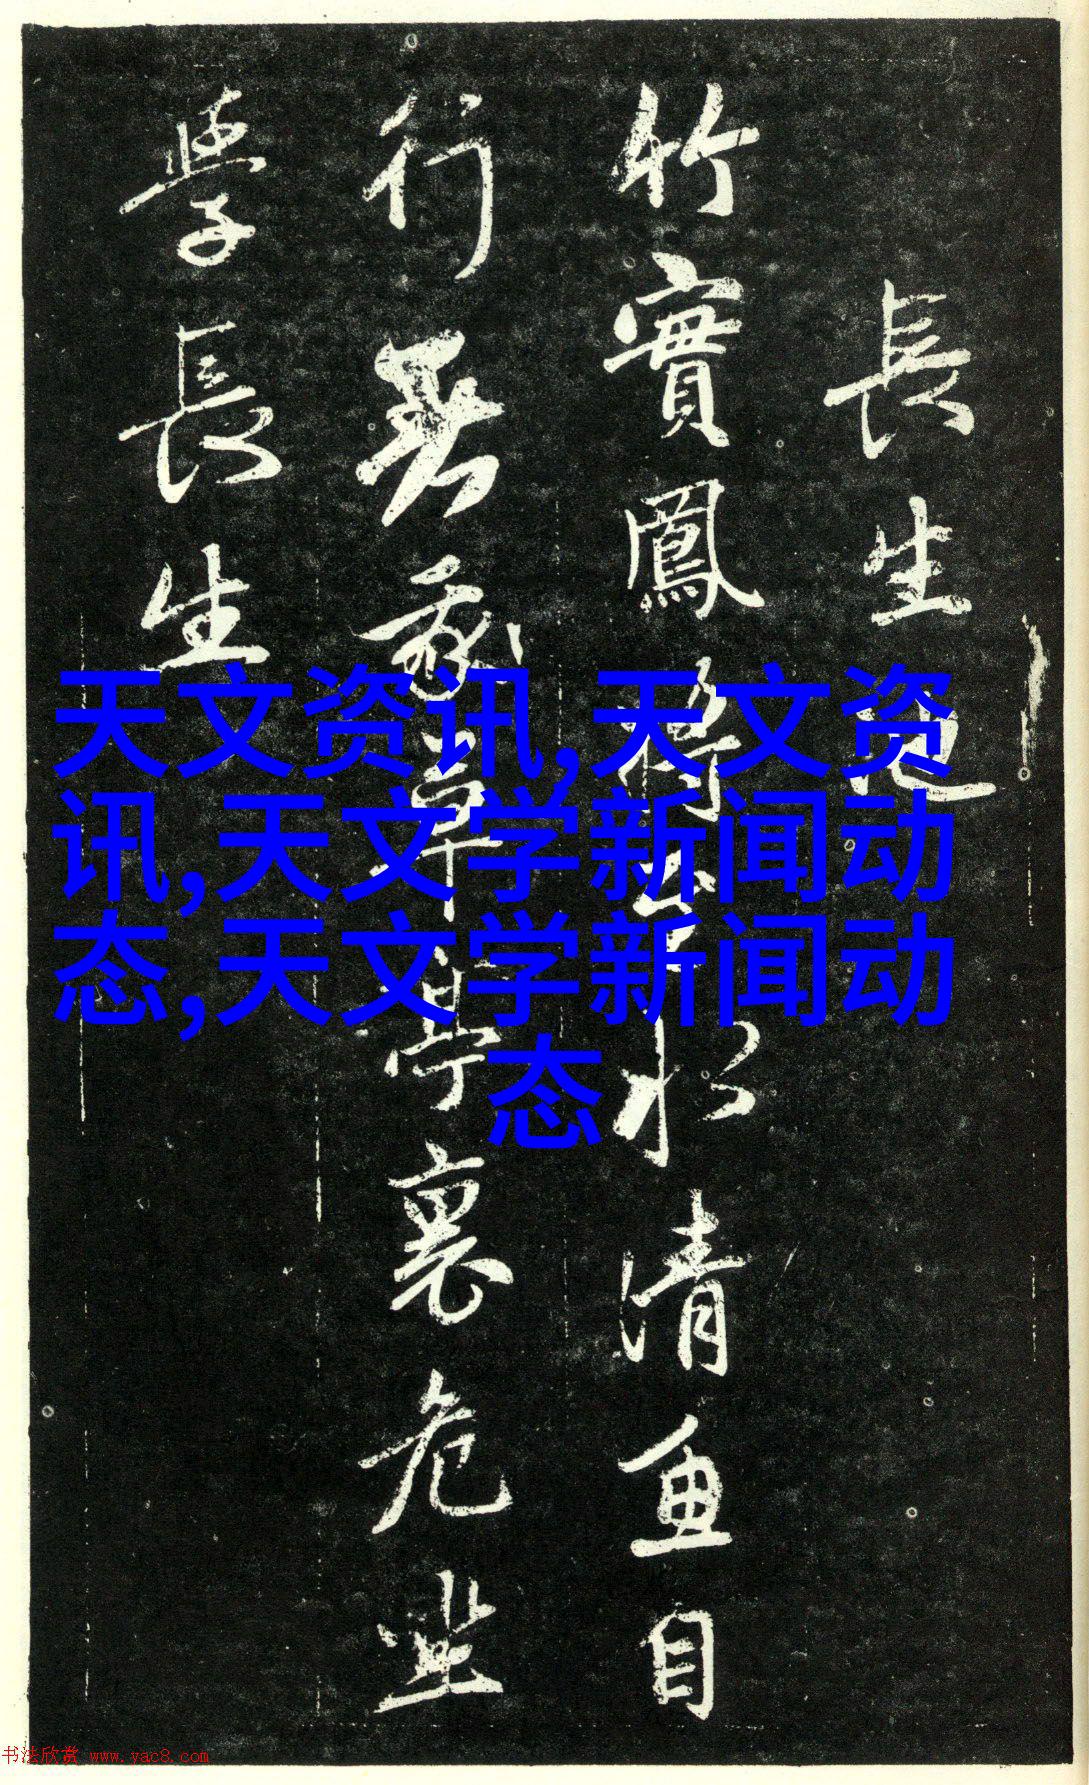 長生池
竹實鳳將水清魚自
行草亭裏危坐
學長生
天文资讯,天文资
讯,天文学新闻动
态,天文学新闻动
态
书法欣赏 www.yac8.com